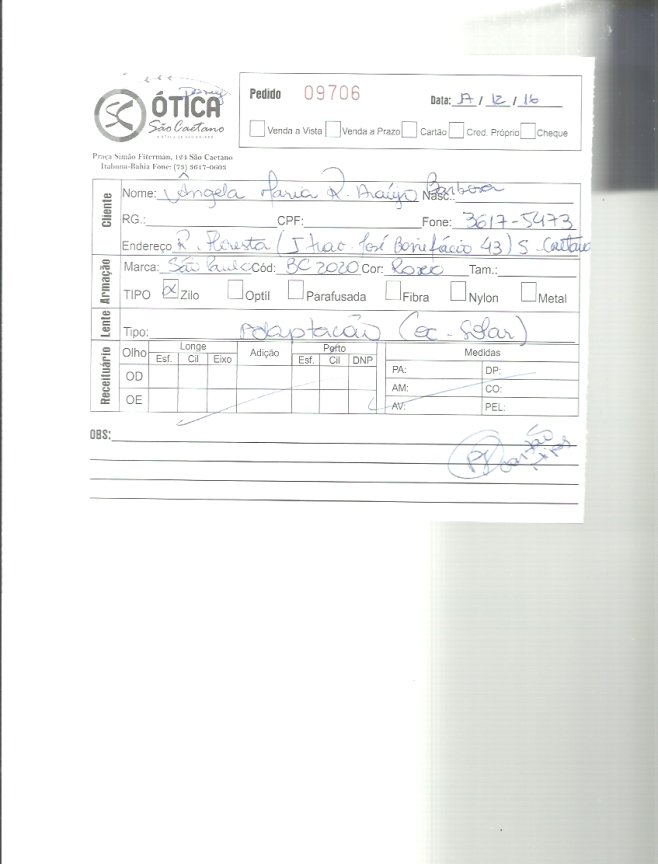 ÓTICA
São Caetano
Praça Simão Fiterman, 121 São Caetano
Itabuna-Bahia Fone: (73) 3617-0603
Pedido 09706 Data: / 12 / 16
Venda a Vista Venda a Prazo Cartão Cred. Próprio Cheque
Cliente
Nome: Ângela Maria R. Araújo Barbosa Nasc.:
RG.: CPF: Fone: 3617-5473
Endereço R. Floresta ( José Bonifácio 43) S. Caetano
Armação
Marca: São Paulo Cód: BC 2020 Cor: Roxo Tam.:
TIPO X Zilo Optil Parafusada Fibra Nylon Metal
Lente
Tipo: Adaptacão (ec - Solar)
Receituário
Olho Longe Adição Perto Medidas
Esf. Cil Eixo Esf. Cil DNP
OD PA: DP:
AM: CO:
OE AV: PEL:
OBS: